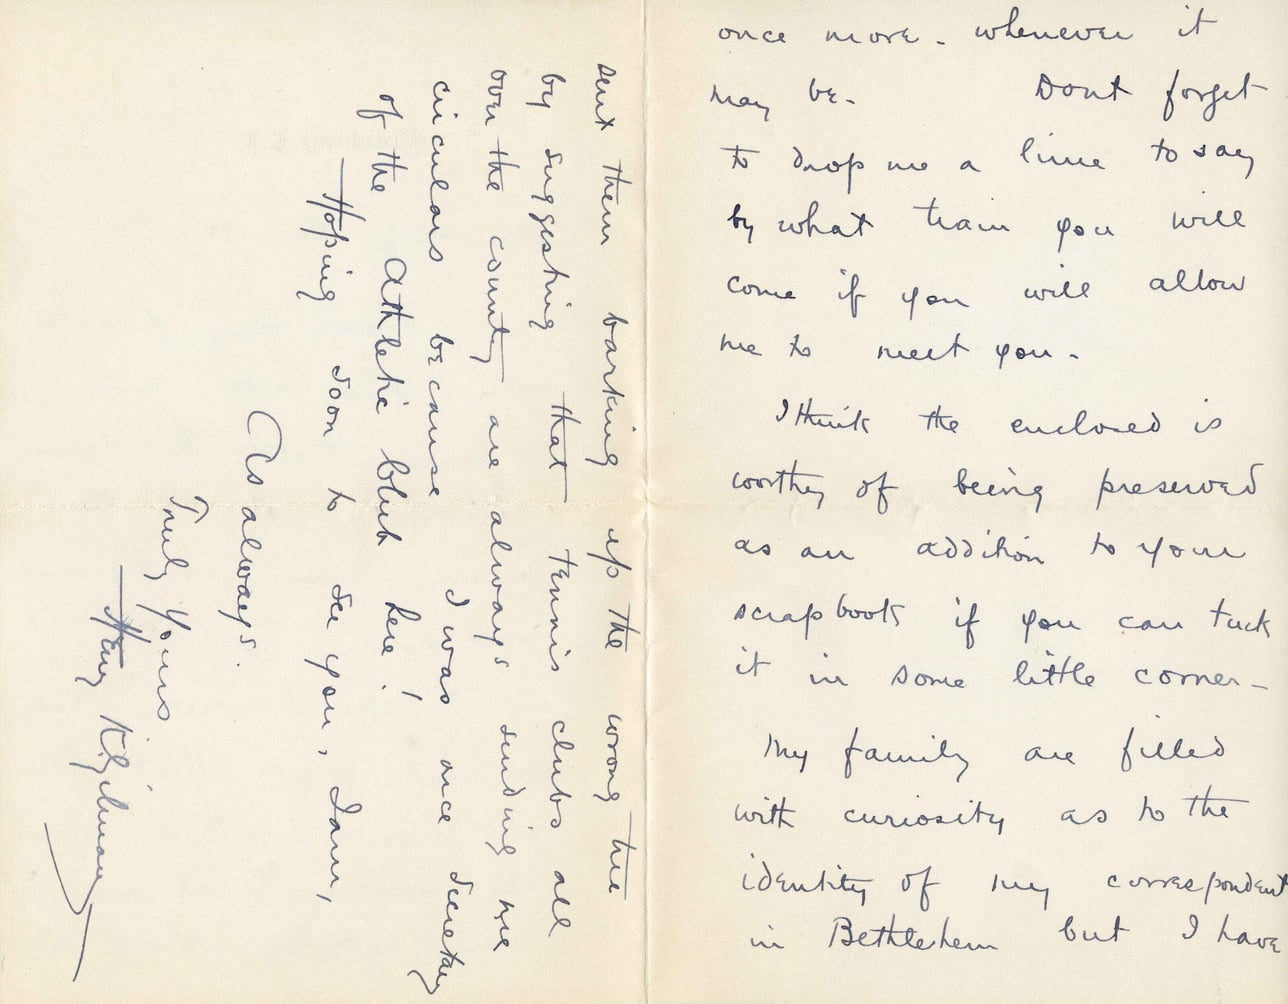 once more - whenever it
may be - Dont forget
to drop me a line to say
by what train you will
come if you will allow
me to meet you -
I think the enclosed is
worthy of being preserved
as an addition to your
scrapbook if you can tuck
it in some little corner -
My family are filled
with curiosity as to the
identity of my correspondent
in Bethlehem but I have
sent them barking up the wrong tree
by suggesting that tennis clubs all
over the country are always sending me
circulars because I was once Secretary
of the Athletic Club here!
Hoping soon to see you, I am,
As always.
Truly Yours